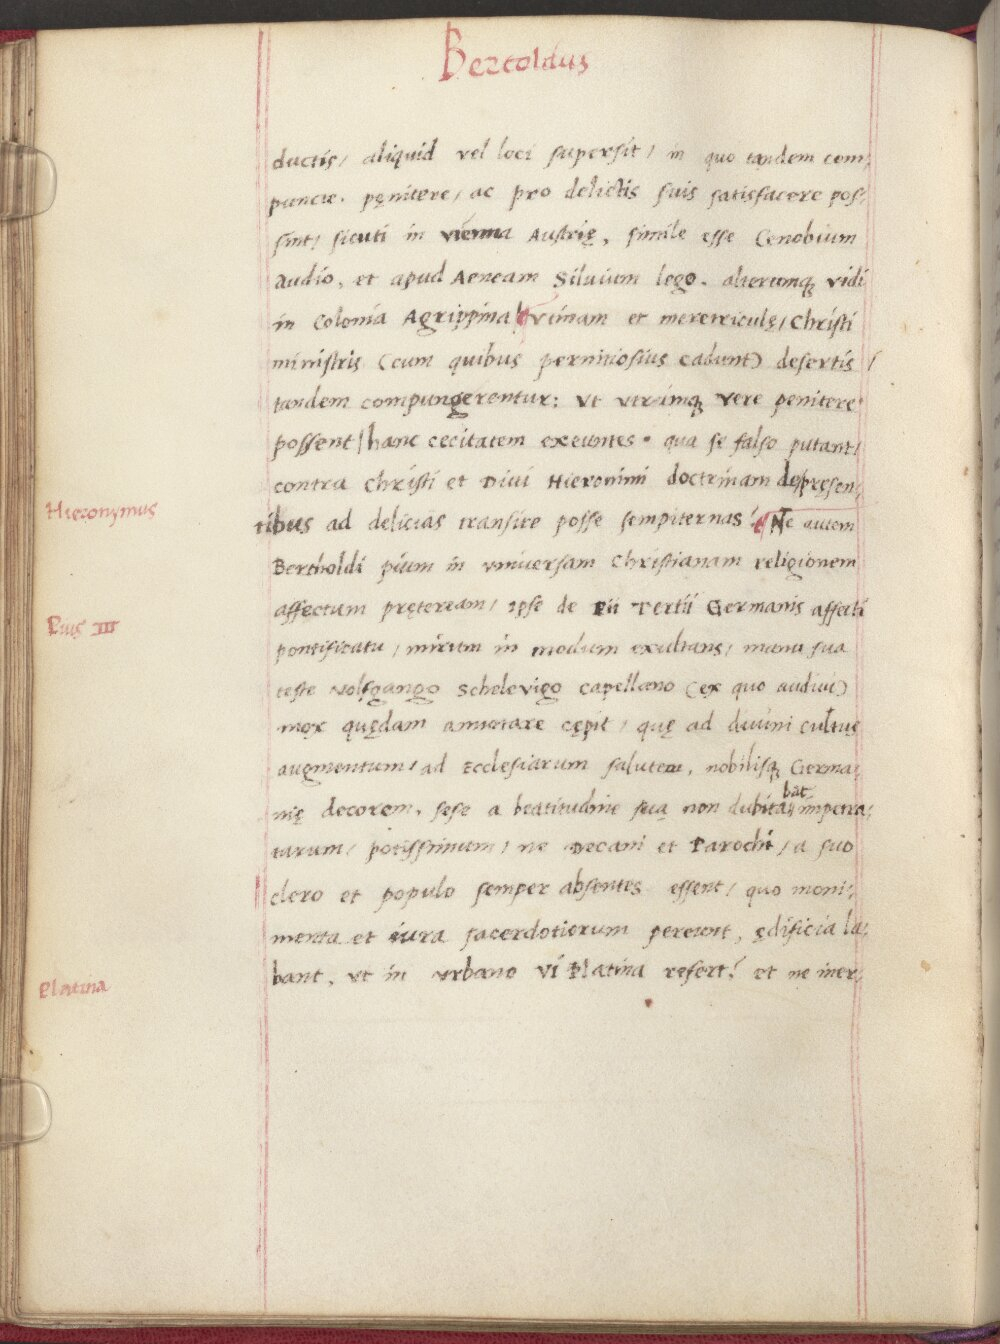 Bertoldus
ductis/ aliquid vel loci supersit/ in quo tandem com;
puncte. pęnitere/ ac pro delictis suis satisfacere pos;
sint/ sicuti in vienna Austrię, simile esse Cenobium
Audio, et apud Aeneam Siluium lego. alterumq; vidi
in Colonia Agrippina/ vtinam et meretriculę/ Christi
ministris (cum quibus pernitiosius cadunt) desertis /
tandem compungerentur: vt vtrimq; vere penitere
possent/ hanc cecitatem exeuntes. qua se falso putant/
contra Christi et Diui Hieronimi doctrinam de pręsen;
Hieronymus
tibus ad delicias transire posse sempiternas! Ne autem
Bertholdi pium in vniuersam Christianam religionem
affectum pręteream/ ipse de Pii Tertii Germanis affecti
Pius III
pontificatu/ mirum in modum exultans/ manu sua
teste Volfgango Schelevigo capellano (ex quo audiui)
mox quędam annotare cępit/ quę ad diuini cultus
augmentum/ ad Ecclesiarum salutem, nobilisq; Germa;
nię decorem, sese a beatitudine sua non dubitabat impetra;
turum/ potissimum/ ne Decani et Parochi/ a suo
clero et populo semper absentes essent/ quo moni;
menta et iura sacerdotiorum pereunt, ędificia la;
bant, vt in vrbano VI Platina refert! et ne iner;
Platina